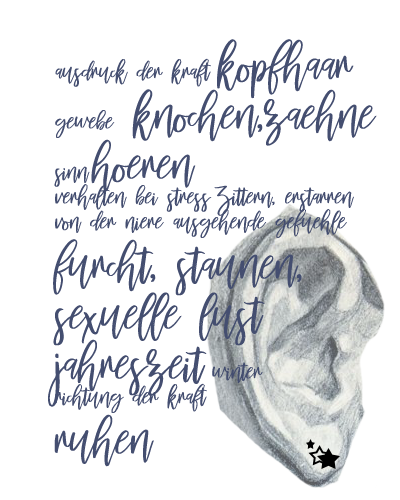 ausdruck der kraft kopfhaar
gewebe knochen,zaehne
sinn hoeren
verhalten bei stress zittern, erstarren
von der niere ausgehende gefuehle
furcht, staunen,
sexuelle lust
jahreszeit winter
richtung der kraft
ruhen